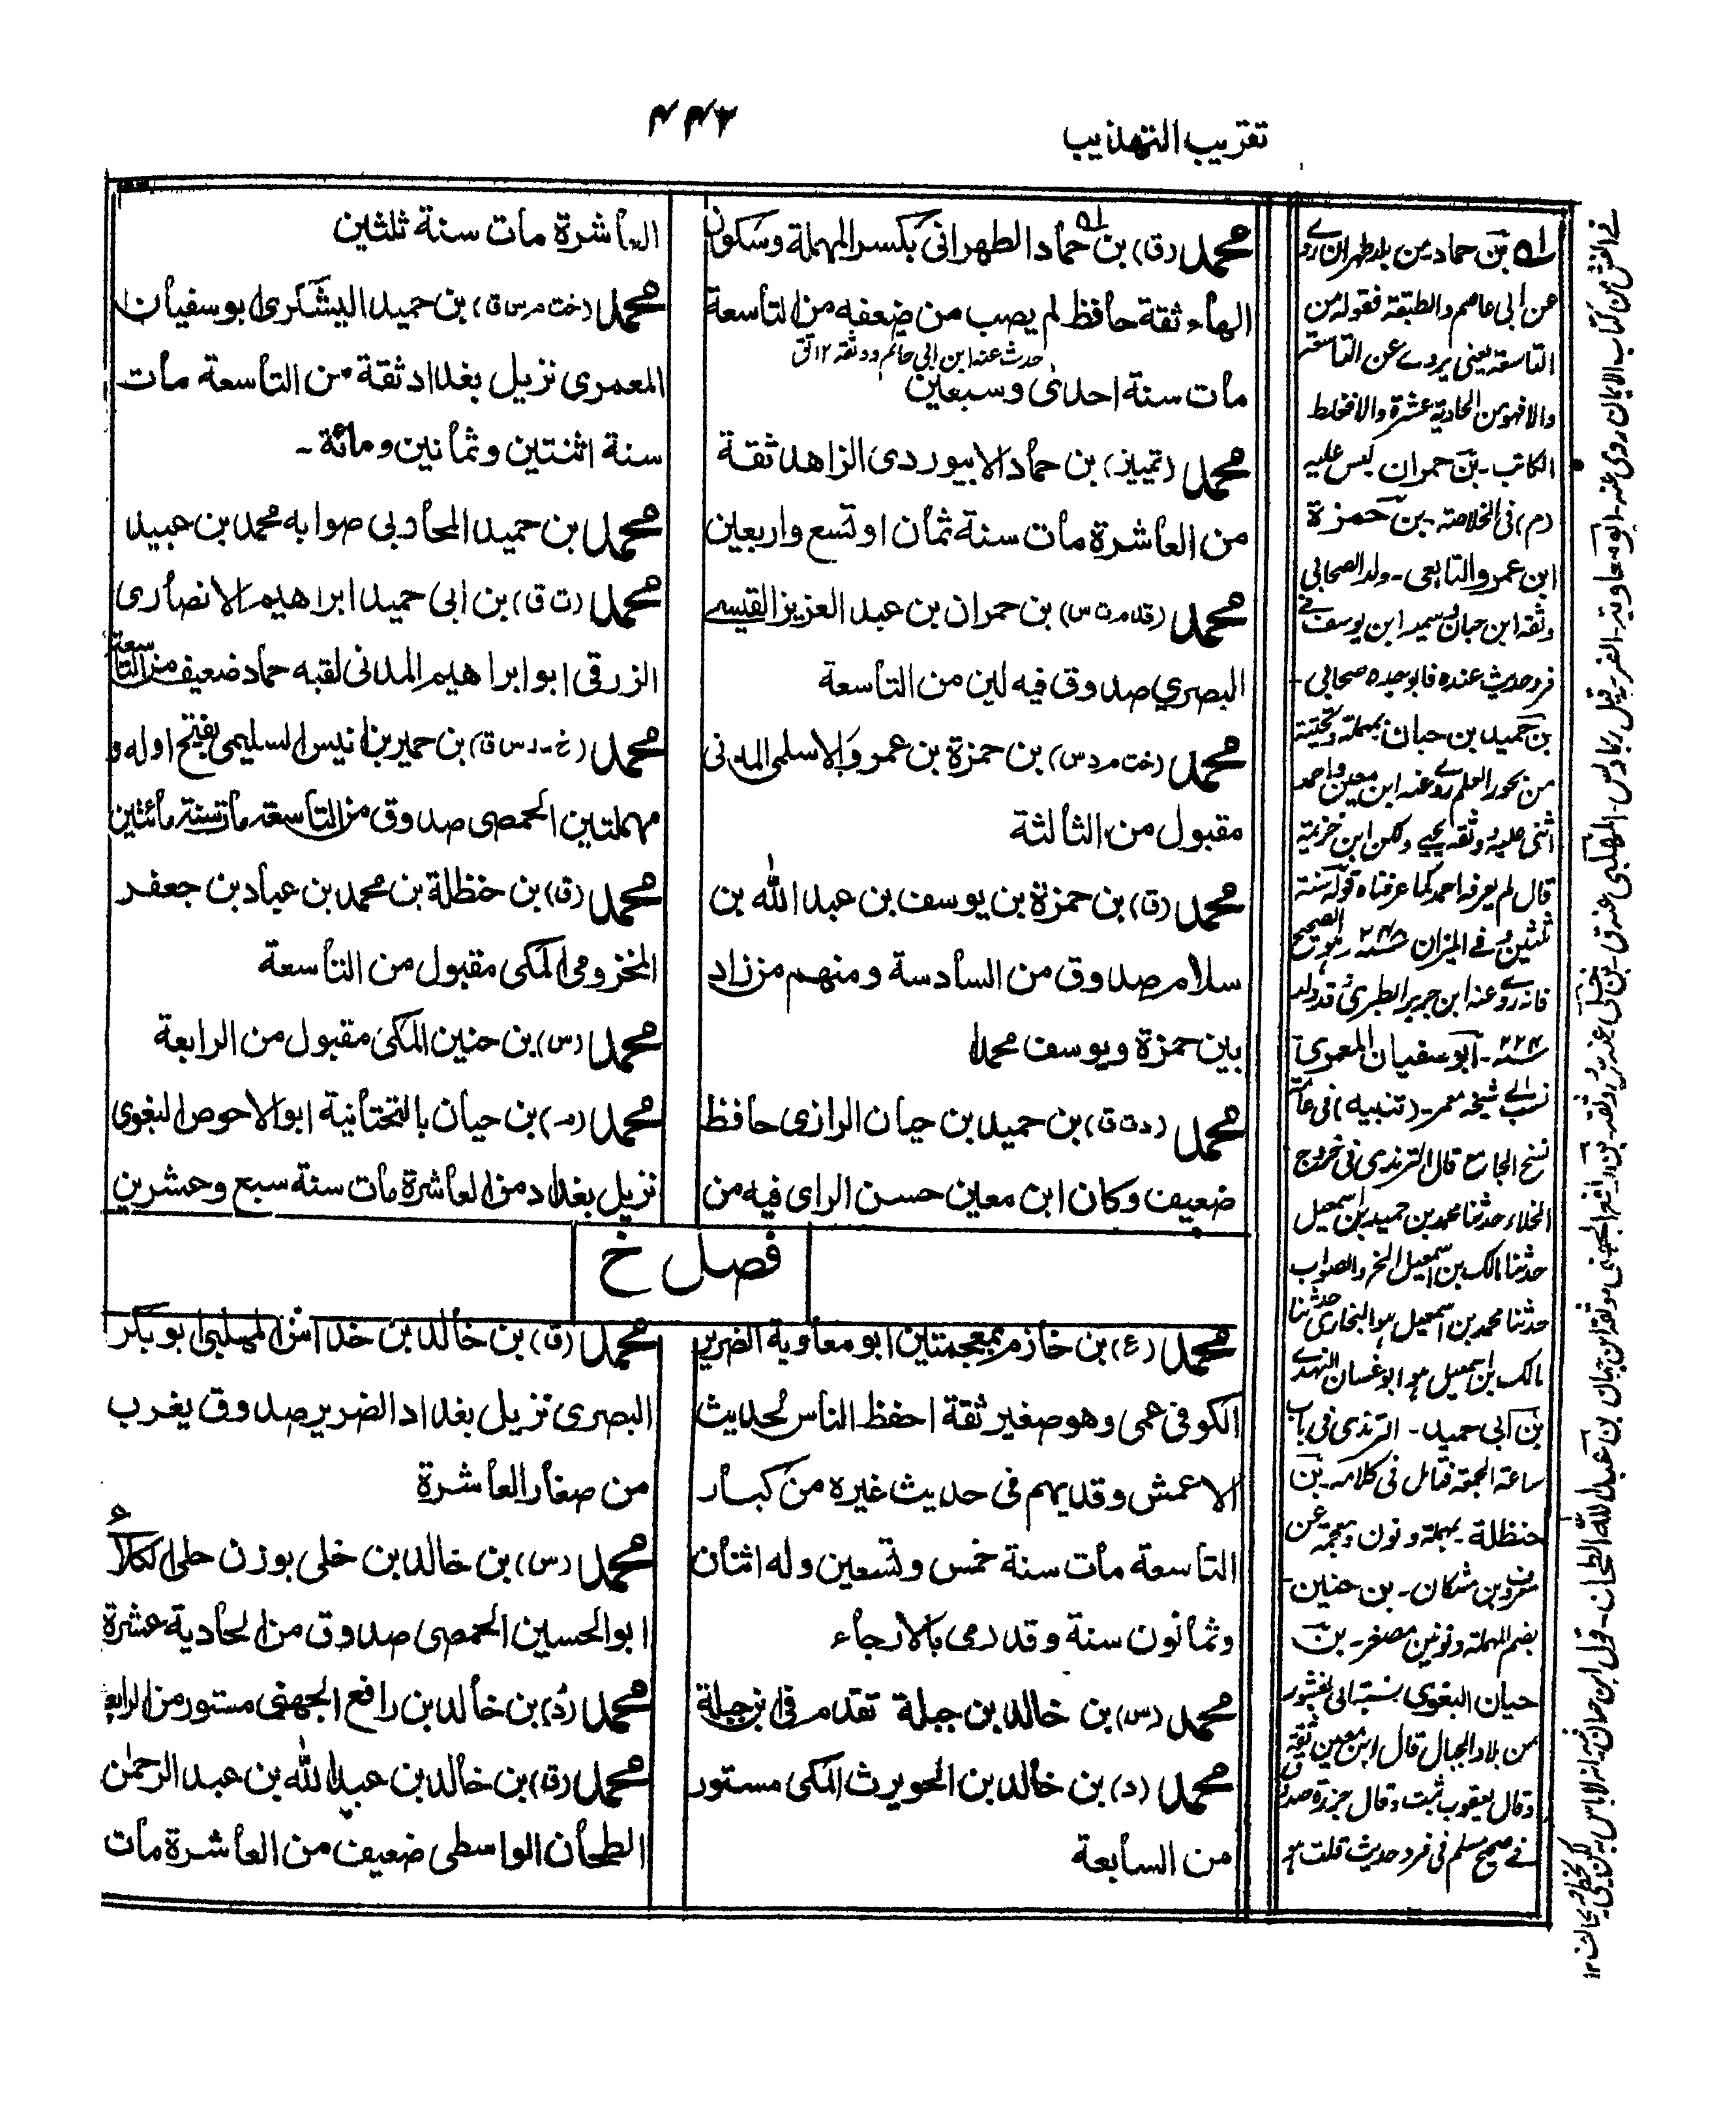 تقريب التهذيب
محمد (ق) بن حماد الطهرانى بكسر المهملة وسكون
الهاء ثقة حافظ لم يصب من ضعفه من التاسعة
حدث عنه ابن ابى حاتم ووثقه ١٢ تق
مات سنة احدى وسبعين
محمد (تمييز) بن حماد الابيوردى الزاهد ثقة
من العاشرة مات سنة ثمان او تسع واربعين
محمد (قد مت س) بن حمران بن عبد العزيز القيسے
البصري صدوق فيه لين من التاسعة
محمد (خت م د س) بن حمزة بن عمرو الاسلمى المدنى
مقبول من الثالثة
محمد (ق) بن حمزة بن يوسف بن عبد الله بن
سلام صدوق من السادسة ومنهم من زاد
بين حمزة ويوسف محمدا
محمد (د ت ق) بن حميد بن حيان الرازى حافظ
ضعيف وكان ابن معين حسن الراى فيه من
العاشرة مات سنة ثلثين
محمد (خت م س ق) بن حميد اليشكرى ابو سفيان
المعمرى نزيل بغداد ثقة من التاسعة مات
سنة اثنتين وثمانين ومائة -
محمد بن حميد المحاربى صوابه محمد بن عبيد
محمد (ت ق) بن ابى حميد ابراهيم الانصارى
الزرقى ابو ابراهيم المدنى لقبه حماد ضعيف من التاسعة
محمد (خ مد س ق) بن حمير بن انيس السليمى بفتح اوله و
مهملتين الحمصى صدوق من التاسعة مات سنة مائتين
محمد (ق) بن حنظلة بن محمد بن عباد بن جعفر
المخزومى المكى مقبول من التاسعة
محمد (س) بن حنين المكى مقبول من الرابعة
محمد (م) بن حيان بالتحتانية ابو الاحوص البغوى
نزيل بغداد من العاشرة مات سنة سبع وعشرين
فصل خ
محمد (ع) بن خازم بمعجمتين ابو معاوية الضرير
الكوفى عمى وهو صغير ثقة احفظ الناس لحديث
الاعمش وقد يهم فى حديث غيره من كبار
التاسعة مات سنة خمس وتسعين وله اثنان
وثمانون سنة وقد رمى بالارجاء
محمد (س) بن خالد بن جبلة تقدم فى ابن جبلة
محمد (د) بن خالد بن الحويرث المكى مستور
من السابعة
محمد (ق) بن خالد بن خداش المهلبى ابو بكر
البصرى نزيل بغداد الضرير صدوق يغرب
من صغار العاشرة
محمد (س) بن خالد بن خلى بوزن على الكلاعى
ابو الحسين الحمصى صدوق من الحادية عشرة
محمد (د) بن خالد بن رافع الجهنى مستور من الرابعة
محمد (ق) بن خالد بن عبد الله بن عبد الرحمن
الطحان الواسطى ضعيف من العاشرة مات
بن حماد من بلد طهران رے رو
عن ابى عاصم والطبقة فقوله من
التاسعة يعنى يروے عن التاسعة
والا فهو من الحادية عشرة والا فغلط
الكاتب - بن حمران ليس عليه
(م) فى الخلاصة - بن حمزة
ابن عمرو التابعى - ولد الصحابى
وثقه ابن حبان بن يوسف
فرد حديث عنده فابوه جده صحابى -
بن حميد بن حيان بمهملة وتحتية
من بحور العلم روے عنه ابن معين واحمد
اثنى عليه وثقه يحيى ولكن ابن خزيمة
قال لم يعرفه احمد كما عرفناه قوله سنة
ثلثين وفے الميزان سنة ٢٤٨ وهو الصحيح
فانه روے عنه ابن جرير الطبرى وقد ولد
سنة ٢٢٤ - ابو سفيان المعمرى
نسب الى شيخه معمر - (تنبيه) فى عامة
نسخ الجامع قال الترمذى فى خروج
الخلاء حدثنا محمد بن حميد بن اسمعيل
حدثنا مالك بن اسمعيل الخ والصواب
حدثنا محمد بن اسمعيل هو البخارى حدثنا
مالك بن اسمعيل هو ابو غسان النهدے
بن ابى حميد - الترمذى فى باب
ساعة الجمعة فتأمل فى كلامه - بن
حنظلة - بمهملة ونون ومعجمة عن
معروف بن مشكان - بن حنين -
بضم المهملة ونونين مصغر - بن
حيان البغوى نسبة الى بغشور
من بلاد الجبال قال ابن معين ثقة
وقال يعقوب ثبت وقال جزرة صدوق
فے صحيح مسلم فى فرد حديث قلت هو